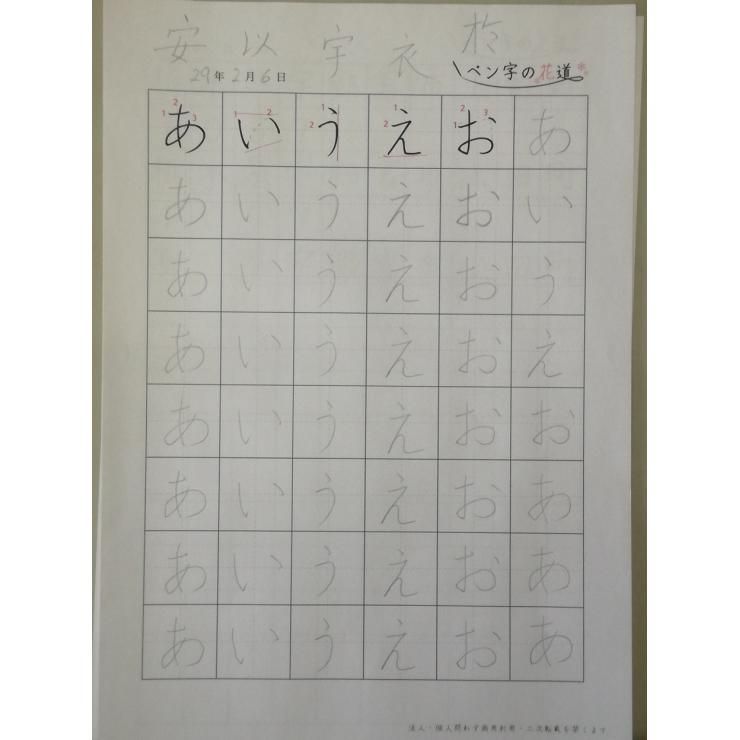 安 以 宇 衣 於
29年2月6日 ペン字の花道
あ い う え お あ
あ い う え お い
あ い う え お う
あ い う え お え
あ い う え お お
あ い う え お あ
あ い う え お あ
あ い う え お あ
法人・個人問わず商用利用・二次転載を禁じます